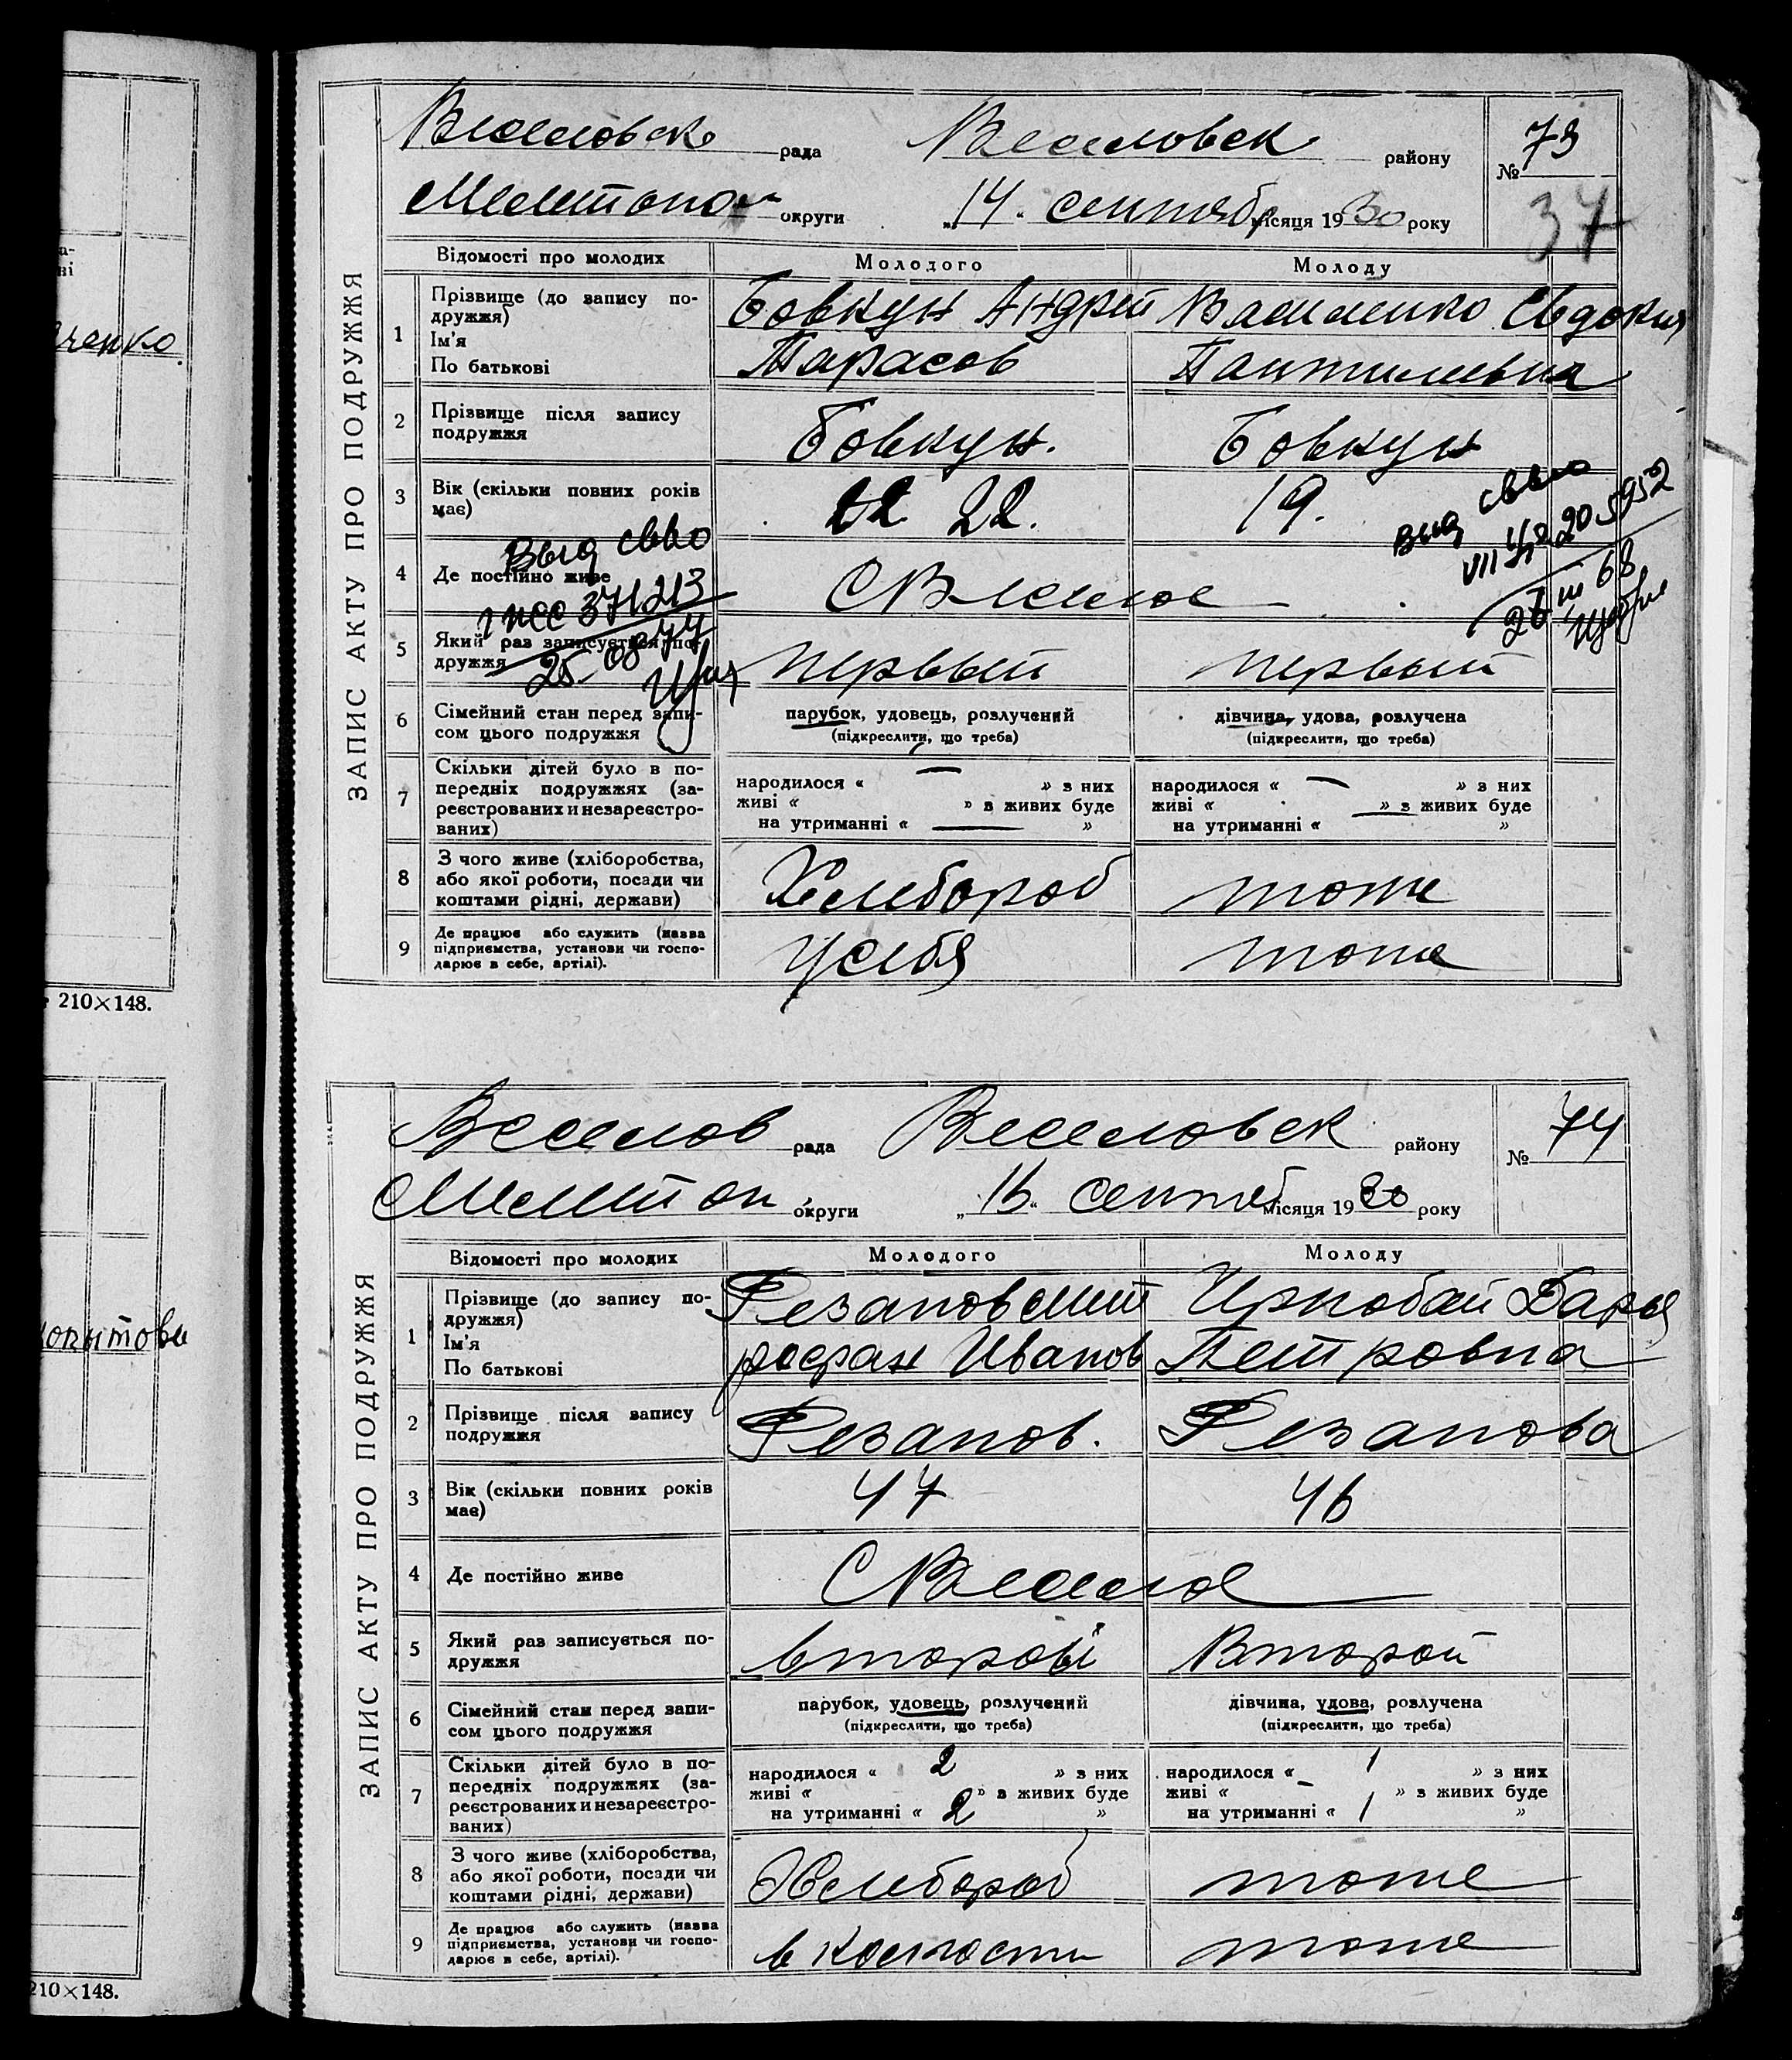 ченко
210×148.
210×148.
ЗАПИС АКТУ ПРО ПОДРУЖЖЯ
Веселовск рада Веселовск району № 73
37
Мелитопол округи „14. сентяб місяця 1930 року
Відомості про молодих Молодого Молоду
1 Прізвище (до запису по-
дружжя)
Ім'я
По батькові
Бовкун Андрей Василенко Евдокия
Тарасов Пантилевна
2 Прізвище після запису
подружжя
Бовкун. Бовкун
3 Вік (скільки повних років
має)
22 22. 19.
Выд св-во
Выд св-во
4 Де постійно живе
С Веселое
371213
25-08 77
68
5 Який раз записується по-
дружжя
первый первый
6 Сімейний стан перед запи-
сом цього подружжя
парубок, удовець, розлучений
(підкреслити, що треба)
дівчина, удова, розлучена
(підкреслити, що треба)
7 Скільки дітей було в по-
передніх подружжях (за-
реєстрованих и незареєстро-
ваних)
народилося « — » з них
живі « » з живих буде
на утриманні « — »
народилося « — » з них
живі « » з живих буде
на утриманні « — »
8 З чого живе (хліборобства,
або якої роботи, посади чи
коштами рідні, держави)
Хлебороб тоже
9 Де працює або служить (назва
підприємства, установи чи госпо-
дарює в себе, артілі).
у себя тоже
ЗАПИС АКТУ ПРО ПОДРУЖЖЯ
Веселов рада Веселовск району № 74
Мелитоп округи „16“ сентяб місяця 1930 року
Відомості про молодих Молодого Молоду
1 Прізвище (до запису по-
дружжя)
Ім'я
По батькові
Резанов Мит Чрнобай Дарья
рофан Иванов Петровна
2 Прізвище після запису
подружжя
Резанов. Резанова
3 Вік (скільки повних років
має)
47 46
4 Де постійно живе
С Веселое
5 Який раз записується по-
дружжя
второй Второй
6 Сімейний стан перед запи-
сом цього подружжя
парубок, удовець, розлучений
(підкреслити, що треба)
дівчина, удова, розлучена
(підкреслити, що треба)
7 Скільки дітей було в по-
передніх подружжях (за-
реєстрованих и незареєстро-
ваних)
народилося « 2 » з них
живі « » з живих буде
на утриманні « 2 »
народилося « 1 » з них
живі « – » з живих буде
на утриманні « 1 »
8 З чого живе (хліборобства,
або якої роботи, посади чи
коштами рідні, держави)
Хлебороб тоже
9 Де працює або служить (назва
підприємства, установи чи госпо-
дарює в себе, артілі).
в тоже